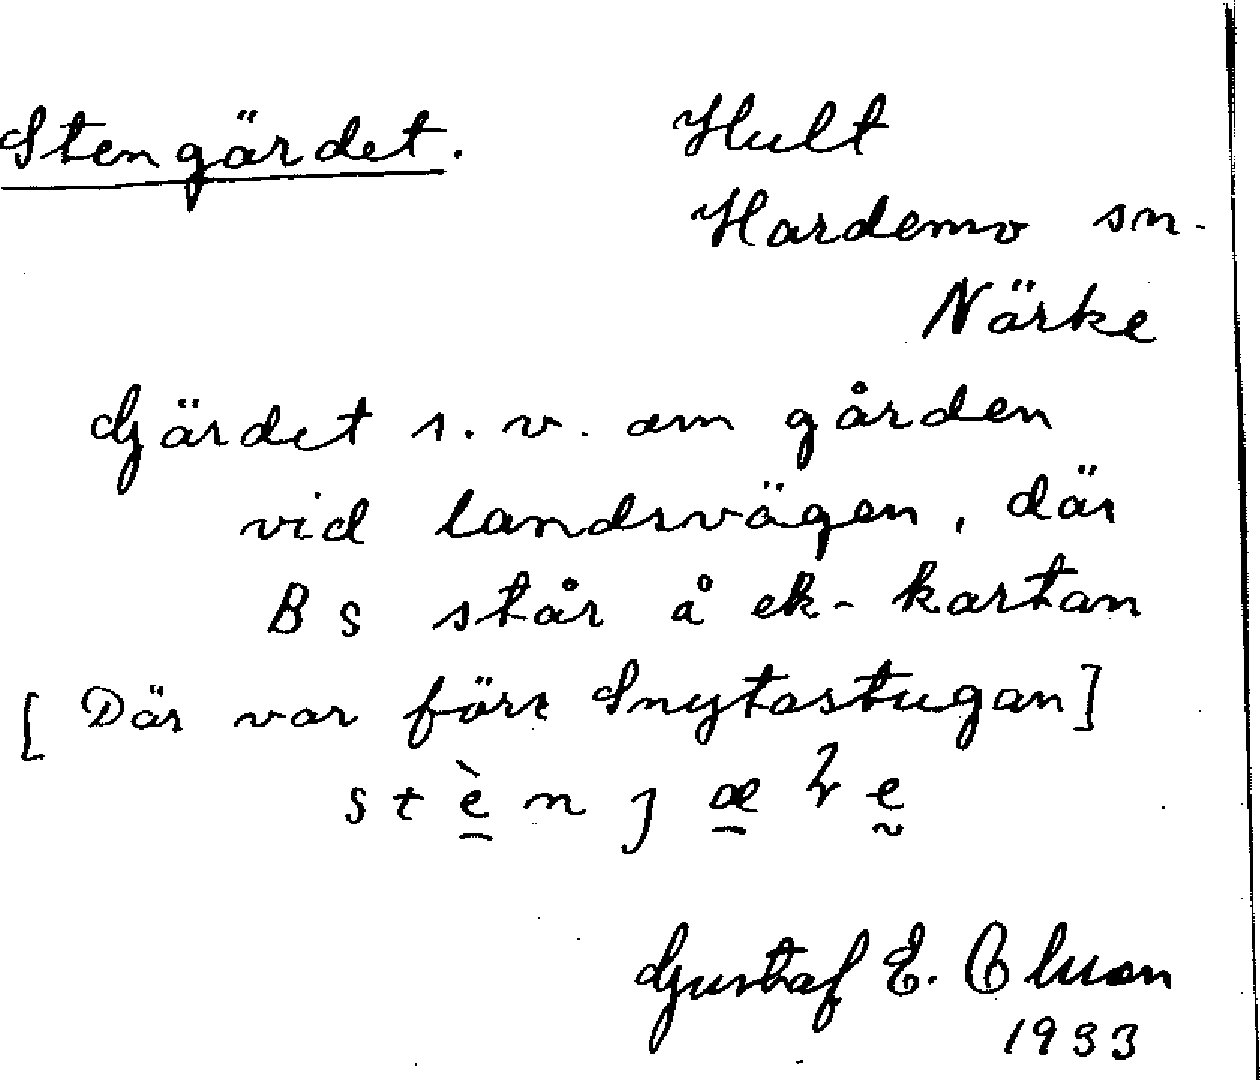 Stengärdet. Hult
Hardemo sn.
Närke
Gärdet s.v. om gården
vid landsvägen, där
Bs står å ek-kartan
[Där var förr Snytastugan]
Gustaf E. Olsson
1933